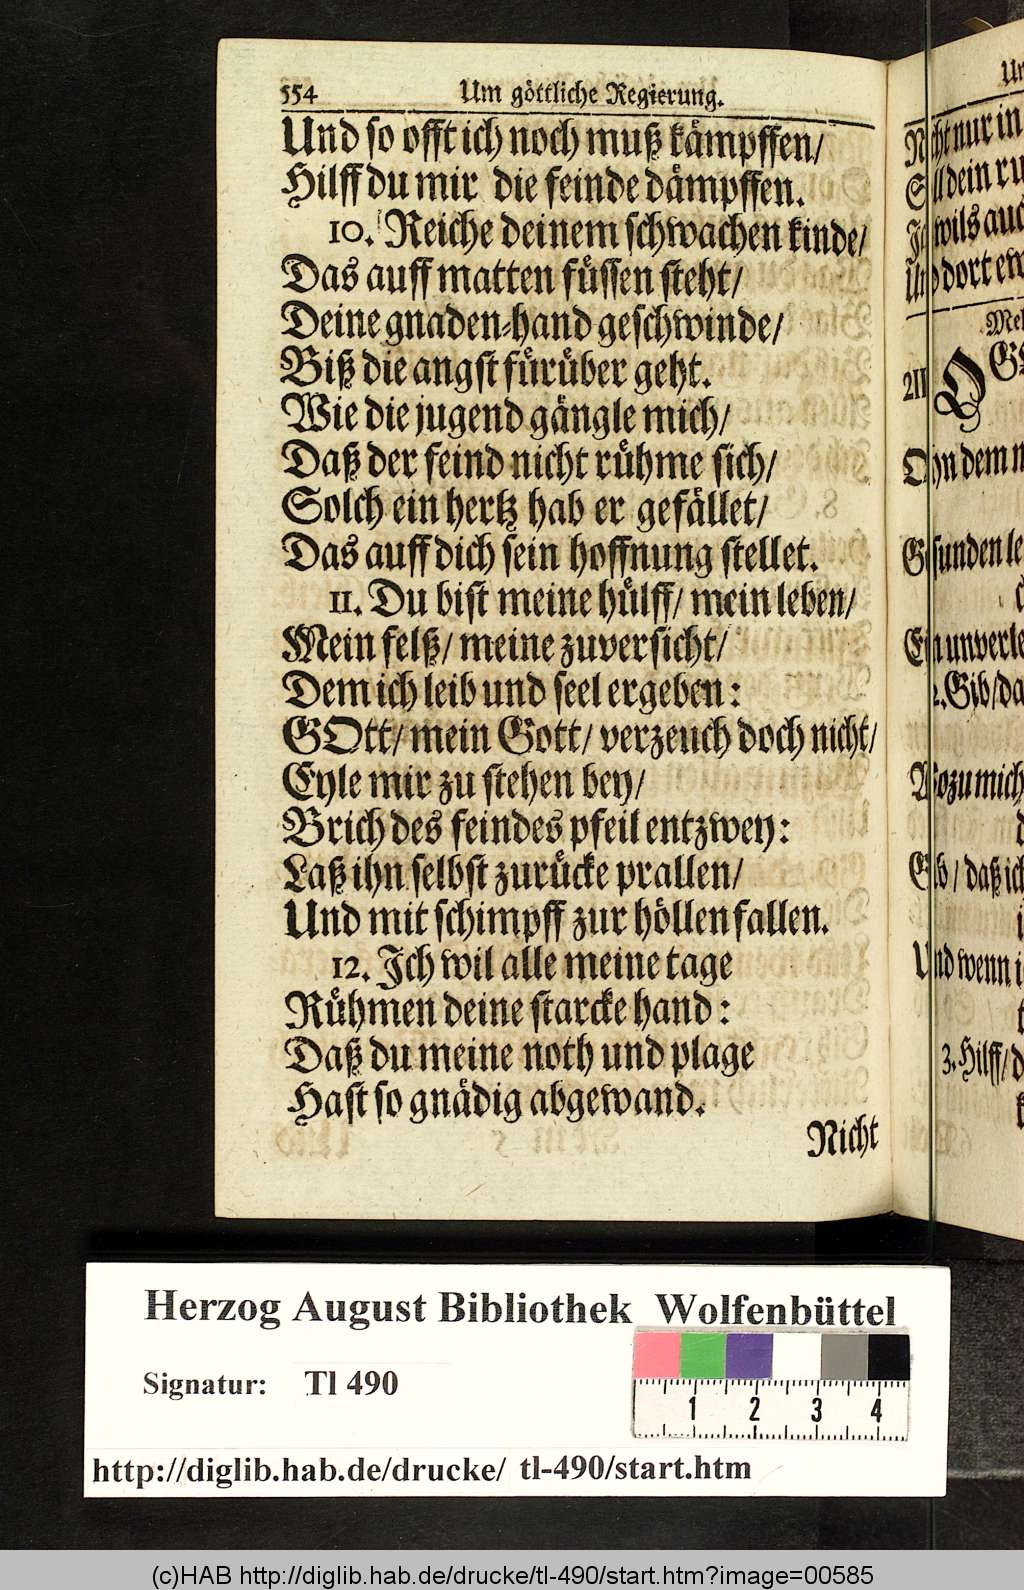 554 Um göttliche Regierung.
Und so offt ich noch muß kämpffen/
Hilff du mir die feinde dämpffen.
10. Reiche deinem schwachen kinde/
Das auff matten füssen steht/
Deine gnaden-hand geschwinde/
Biß die angst fürüber geht.
Wie die jugend gängle mich/
Daß der feind nicht rühme sich/
Solch ein hertz hab er gefället/
Das auff dich sein hoffnung stellet.
11. Du bist meine hülff/ mein leben/
Mein felß/ meine zuversicht/
Dem ich leib und seel ergeben:
GOtt/ mein Gott/ verzeuch doch nicht/
Eyle mir zu stehen bey/
Brich des feindes pfeil entzwey:
Laß ihn selbst zurücke prallen/
Und mit schimpff zur höllen fallen.
12. Ich wil alle meine tage
Rühmen deine starcke hand:
Daß du meine noth und plage
Hast so gnädig abgewand.
Nicht
nur in
dein
wils
dort
211
dem
Gesunden
2. Gib/
Wozu mich
Gib/ daß ich
Und wenn
3. Hilff/
Herzog August Bibliothek Wolfenbüttel
Signatur: Tl 490
1 2 3 4
http://diglib.hab.de/drucke/ tl-490/start.htm
(c)HAB http://diglib.hab.de/drucke/tl-490/start.htm?image=00585